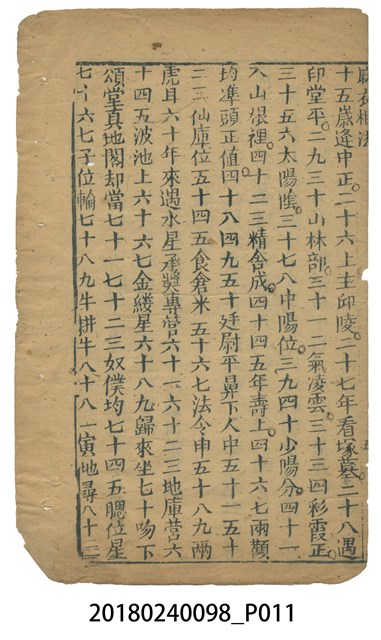 麻衣相法
十五歲逢中正。二十六上主丘陵。二十七年看塚墓。二十八遇
印堂平。二九三十山林部。三十一二氣凌雲。三十三四彩霞正。
三十五六太陽陰。三十七八中陽位。三九四十少陽分。四十一
八山根裡。四十二三精舍成。四十四五年壽上。四十六七兩顴
均準頭正值四十八四九五十廷尉平鼻下人中五十一五十
二三仙庫位五十四五食倉米五十六七法令申五十八九兩
虎耳六十年來遇水星承漿專營六十一六十二三地庫營六
十四五波池上六十六七金縷星六十八九歸來坐七十吻下
頌堂真地閣却當七十一七十二三奴僕均七十四五腮位星
七十六七子位輪七十八九牛耕牛八十八一寅地尋八十二
20180240098_P011